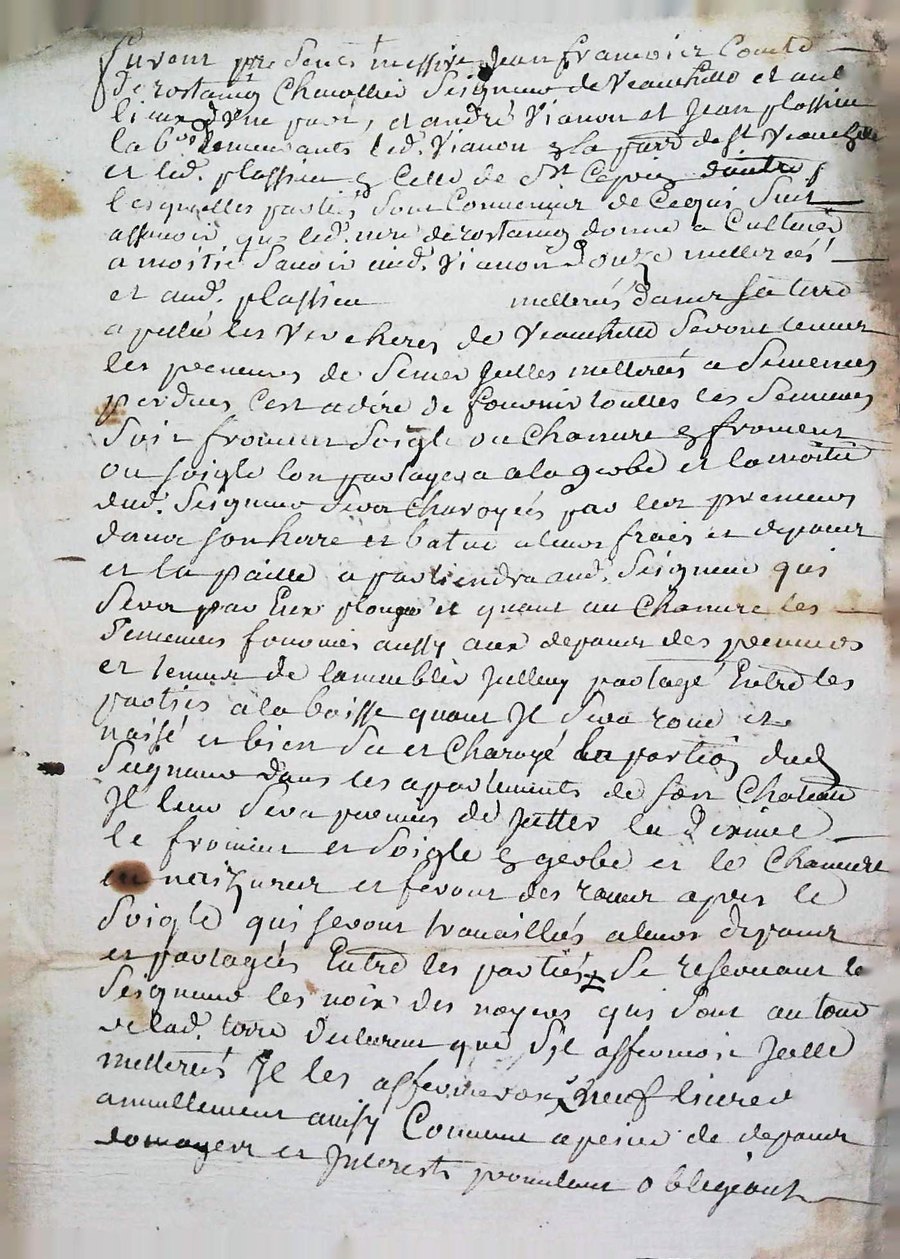 furent presents messire Jean francois Comte
de rostaing Chevallier Seigneur de Veauchette et aut
lieux d'une part, et andré Vianon et Jean plassieu
la b demeurants led. Vianon a la parr de st Veauche
et led. plassieu a Celle de St Ciprien dautre
lesquelles parties sont Convenues de Cequi Suit
assavoir que led. mre de rostaing donne a Cultiver
a moitié Savoir aud. Vianon Douze metterées
et aud. plassieu metterées dans sa terre
apellée les Vercheres de Veauchette Seront tenus
les preneurs de Semer Jcelles metterées a Semences
perdues C'est adire de fournir touttes les Semences
Soit froment Soigle ou Chanvre & froment
ou soigle lon partagera a la gerbe et la moitié
dud. Seigneur Sera Charoyée par les preneurs
dans son here et batue a leurs frais et depans
et la paille apartiendra aud. Seigneur qui
Sera par Eux plongée et quant au Chanvre les
Semences fournies aussy aux depans des preneurs
et tenus de Jcelluy partagé Entre les
parties a la boisse quant Jl Sera roué et
naisé et bien Sec et Charoyé la portion dud
Seigneur dans les apartements de son Chateau
Jl leur Sera permis de Jetter la
le froment et Soigle & gerbe et le Chanvre
et feront des raves apres le
Soigle qui seront travaillées a leurs depans
et partagées Entre les parties Se reservant le
Seigneur les noix des noyers qui Sont au tour
de lad. terre declarent que S'il affermoit Jcelle
metterées Je les affermerois neuf livres
annuellement ainsy Convenu a peine de depans
domages et Jnterests promettant obligeant